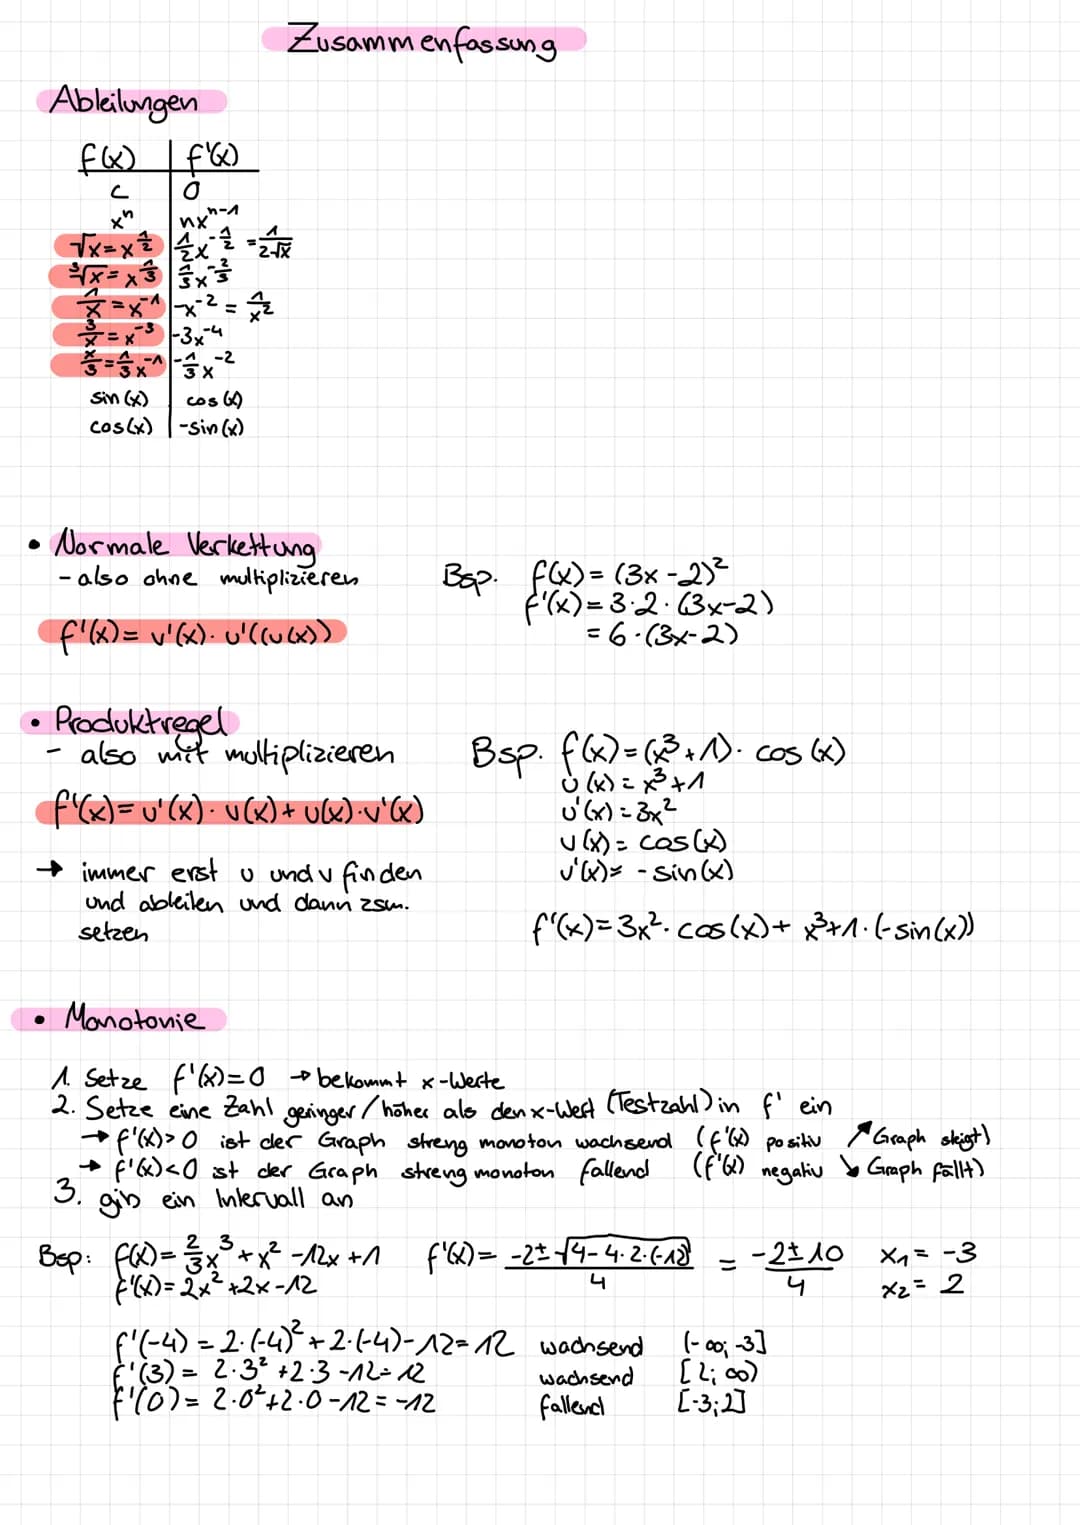 Zusammenfassung
Ableitungen
f(x) | f'(x)
c | 0
xⁿ | nxⁿ⁻¹
√x = x^½ | ½x^-½ = 1/(2√x)
³√x = x^⅓ | ⅓x^-⅔
1/x = x⁻¹ | -x⁻² = 1/x²
3/x = x⁻³ | -3x⁻⁴
x/3 = ⅓x⁻¹ | -⅓x⁻²
sin(x) | cos(x)
cos(x) | -sin(x)
• Normale Verkettung
- also ohne multiplizieren
f'(x) = v'(x) · u'((v(x))
Bsp. f(x) = (3x-2)²
f'(x) = 3·2·(3x-2)
= 6·(3x-2)
• Produktregel
- also mit multiplizieren
f'(x) = u'(x) · v(x) + u(x) · v'(x)
→ immer erst u und v finden
und ableiten und dann zsm.
setzen
Bsp. f(x) = (x³+1) · cos(x)
u(x) = x³+1
u'(x) = 3x²
v(x) = cos(x)
v'(x) = -sin(x)
f'(x) = 3x² · cos(x) + x³+1 · (-sin(x))
• Monotonie
1. Setze f'(x)=0 → bekommt x-Werte
2. Setze eine Zahl geringer/höher als den x-Wert (Testzahl) in f' ein
→ f'(x)>0 ist der Graph streng monoton wachsend (f'(x) positiv ↗ Graph steigt)
→ f'(x)<0 ist der Graph streng monoton fallend (f'(x) negativ ↘ Graph fällt)
3. gib ein Intervall an
Bsp: f(x) = ⅔x³+x²-12x+1 f'(x) = (-2±√(4-4·2·(-12)))/4 = (-2±10)/4 x₁ = -3
f'(x) = 2x²+2x-12 x₂ = 2
f'(-4) = 2·(-4)²+2·(-4)-12 = 12 wachsend (-∞; -3]
f'(3) = 2·3²+2·3-12 = 12 wachsend [2; ∞)
f'(0) = 2·0²+2·0-12 = -12 fallend [-3;2]